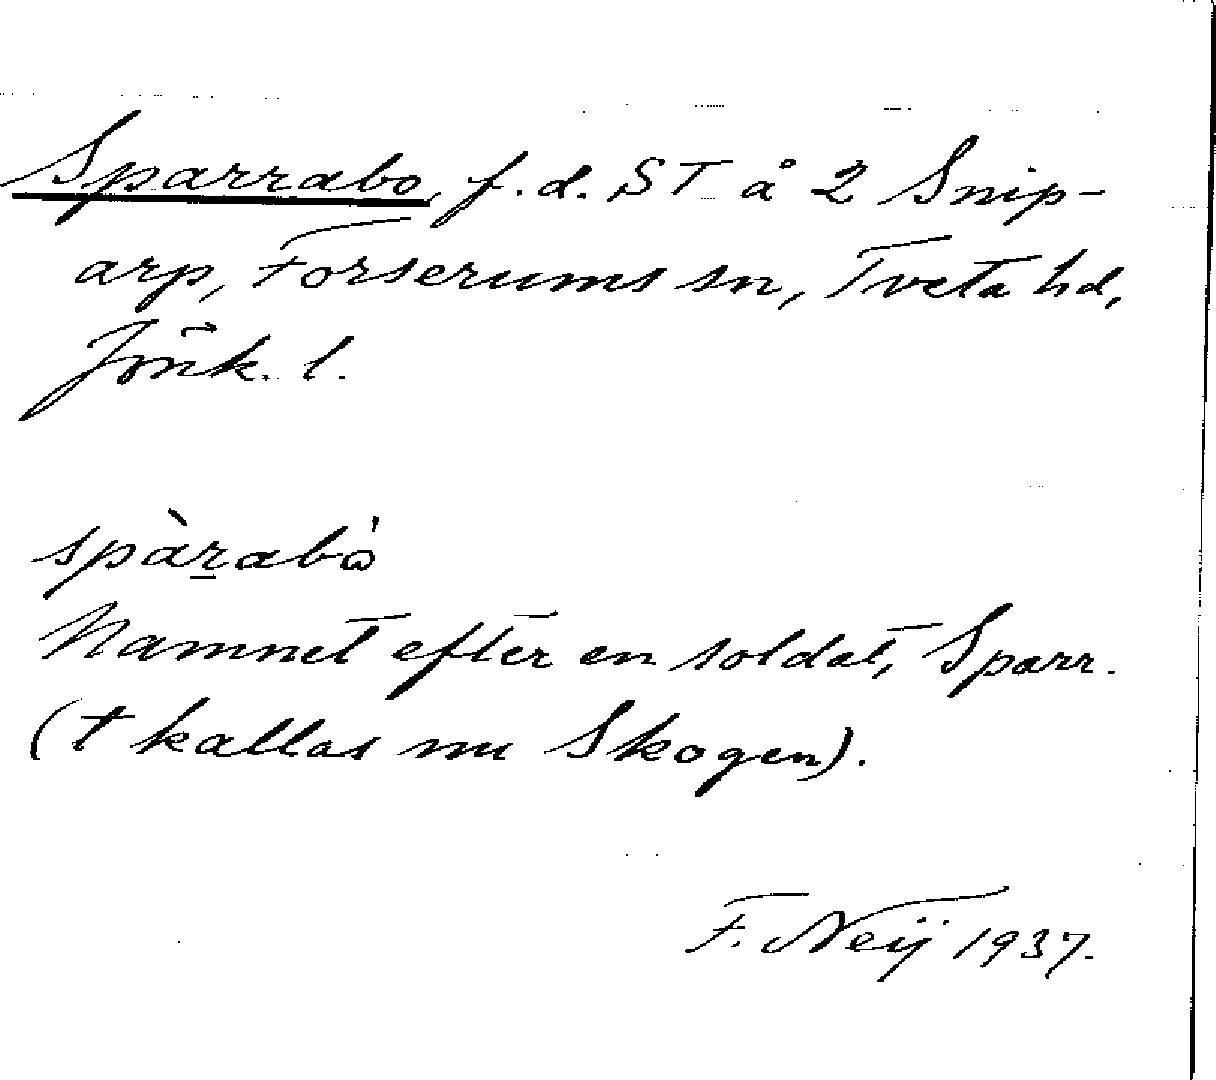 Sparrabo, f.d. ST å 2 Snip-
arp, Forserums sn, Tveta hd,
Jönk. l.
spàr̲abò
Namnet efter en soldat, Sparr.
(t kallas nu Skogen).
F. Neij 1937.